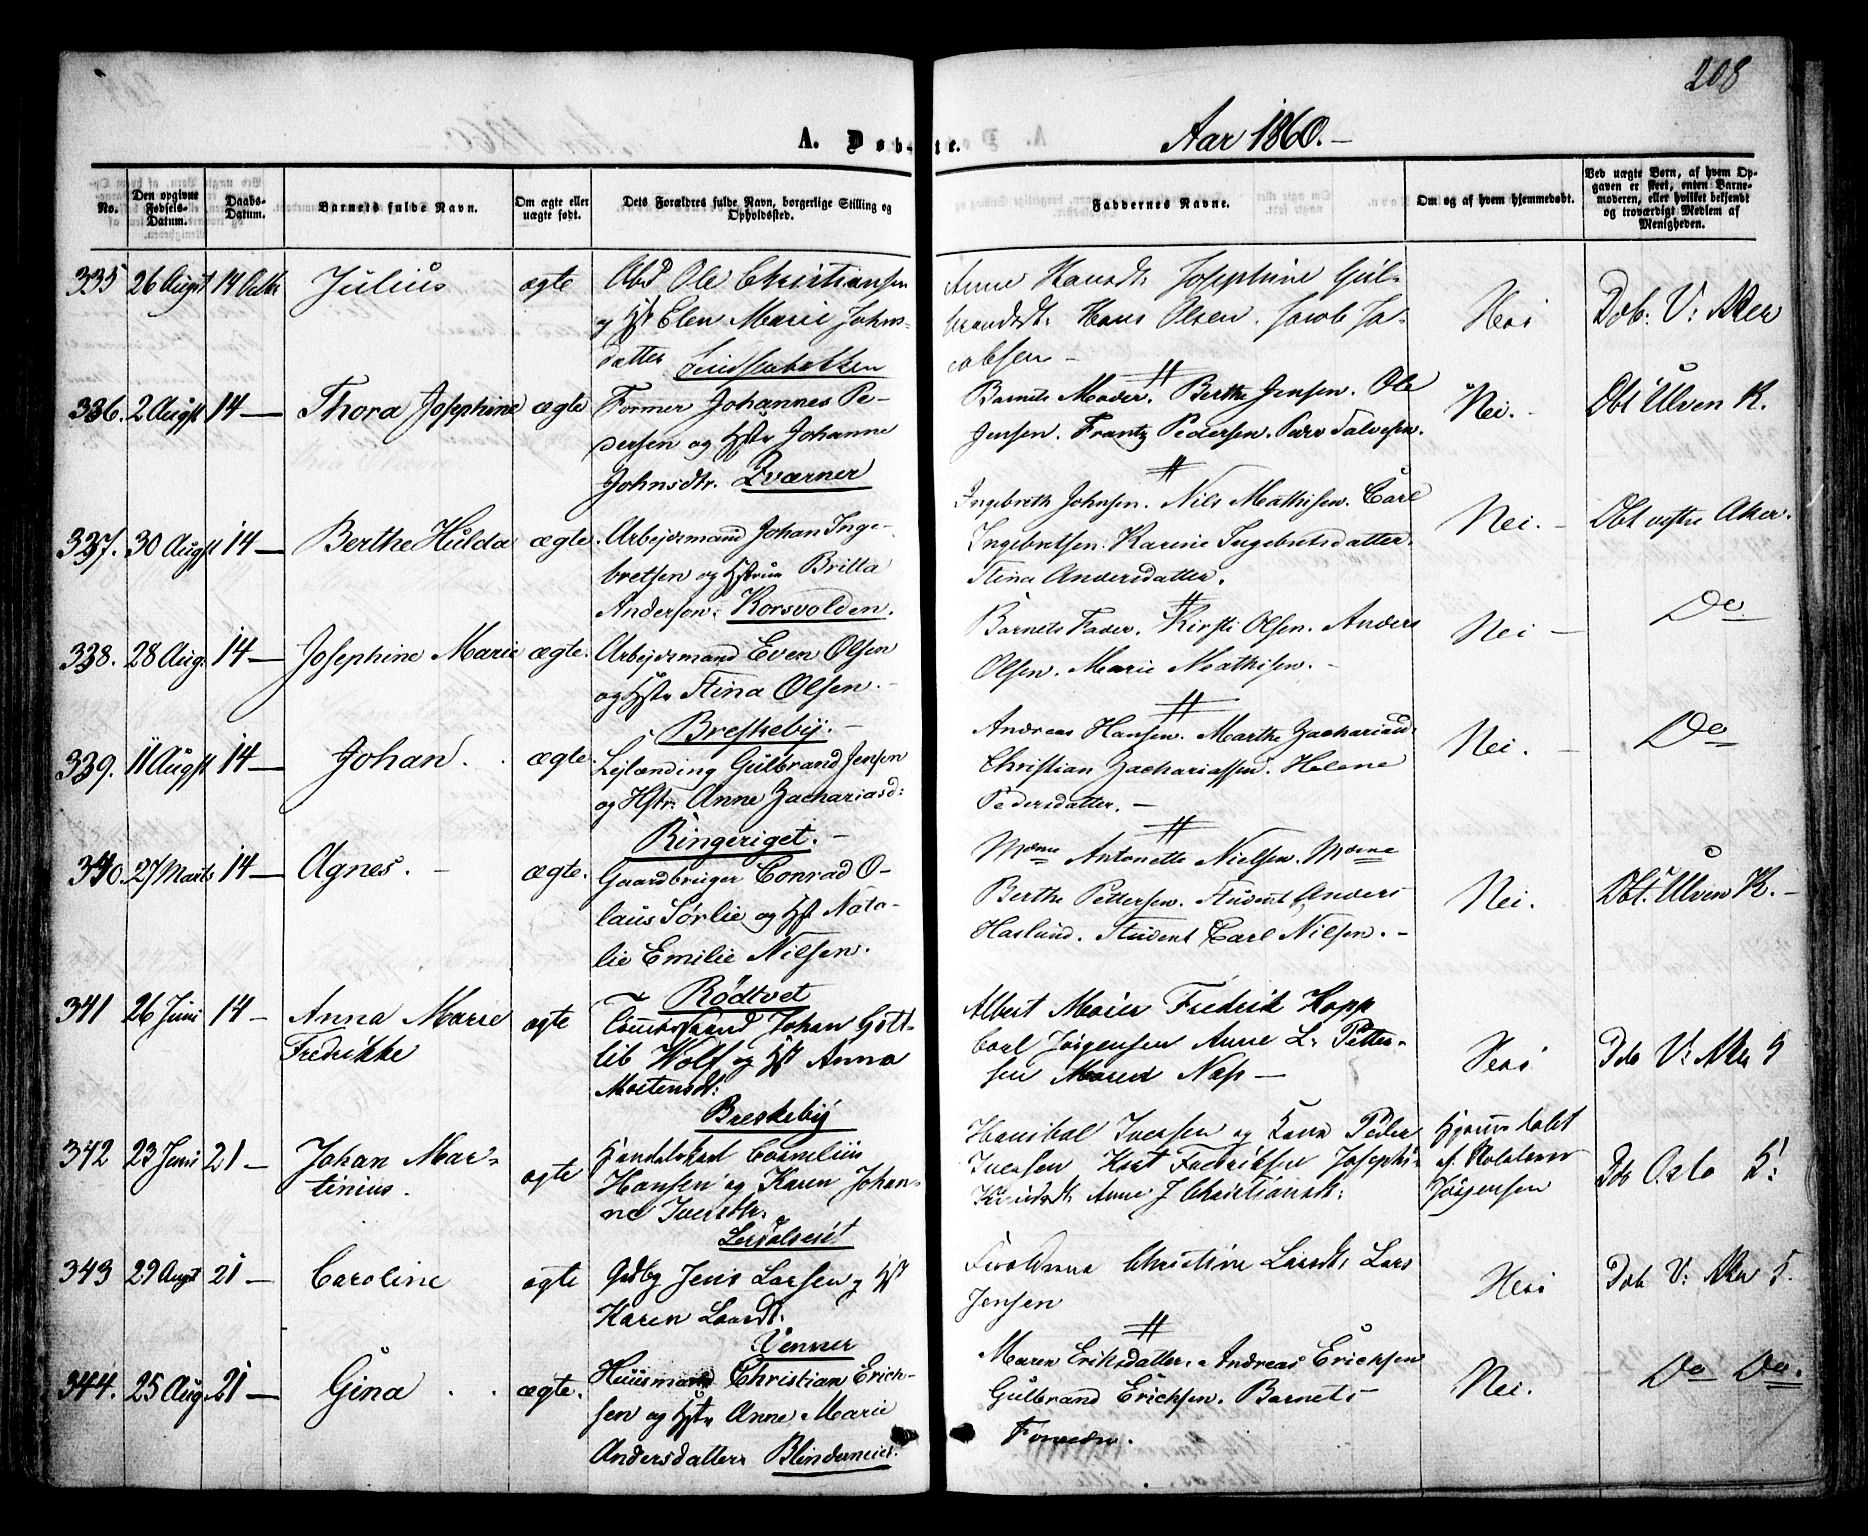 208
A. Døbte. Aar 1860.-
No.
Den opgivne Fødsels-Datum.
Daabs-Datum.
Barnets fulde Navn.
Om ægte eller uægte født.
Dets Forældres fulde Navn, borgerlige Stilling og Opholdssted.
Faddernes Navne.
Om og af hvem hjemmedøbt.
Ved uægte Børn, af hvem Opgaven er skeet, enten Barnemoderen, eller hvilket bekjendt og troværdigt Medlem af Menigheden.
335 26 August 14 Octbr Julius ægte
Arbd Ole Christiansen
og Hst Elen Marie Johns-
datter
Anne Hansdt: Josephine Gul-
brandsdt: Hans Olsen. Jacob Ja-
cobsen -
Nei Døb: V: Aker
336. 2 Augst 14 — Thora Josephine ægte
Former Johannes Pe-
dersen og Hstr Johanne
Johnsdtr. Qværner
Barnets Moder. Berthe Jensen. Ole
Jensen. Frantz Pedersen.
Nei. - Dbt Ulven K.
337. 30 Augst 14 — Berthe Hulda ægte.
Arbejdsmand Johan Inge-
bretsen og Hstrue Britta
Andersen. Korsvolden.
Ingebreth Johnsen. Nils Mathisen. Carl
Ingebretsen. Karine Ingebretsdatter.
Stina Andersdatter.
Nei. - Dbt vestre Aker.
338. 28 Aug. 14 — Josephine Marie ægte.
Arbejdsmand Even Olsen
og Hstr Stina Olsen. -
Breskeby. -
Barnets Fader. Kirsti Olsen. Anders
Olsen. Marie Mathisen. -
Nei - Do
339. 11 Augst 14 — Johan. ægte.
Lejlænding Gulbrand Jensen
og Hstr: Anne Zachariasd:
Ringeriget. -
Andreas Hansen. Marthe Zachariasd.
Christian Zachariassen. Helene
Pedersdatter. -
Nei. - Do
340. 27 Marts 14 — Agnes. - ægte.
Gaardbruger Conrad O-
laus Sørlie og Hst Nata-
lie Emilie Nilsen.
Rödtvet
Mdme Antonette Nielsen. Mdme
Berthe Pettersen. Student Anders
Haslund. Student Carl Nilsen. -
Nei. Dbt. Ulven K. -
341 26 Juni 14 - Anna Marie
Fredrikke ægte
Johan Gott-
lib Wolf og Hst Anna
Mortensdt:
Breskeby
Albert Meier Fredrik Hopp
Carl Jörgensen Anne L. Petter-
sen Maren Næs -
Nei Døb V: Aker K
342 23 Juni 21 - Johan Mar-
tinius. ægte
Handelskarl Cornelius
Hansen og Karen Johan-
ne Iversdtr.
Hanibal Iversen og Kone Peder
Iversen Knut Fredriksen Josephi-
Knudsdt: Anne J Christiansdt:
Hjemmedøbt
af
Jörgensen
Døb Oslo K:
343 29 Augst 21 - Caroline ægte
Grdbg Jens Larsen og Hst
Karen Larsdt:
Venner
Forældrene Christine Larsdt: Lars
Jensen
Nei Døb V: Aker K.
344. 25 Aug. 21 — Gina ægte.
Huusmand Christian Erich-
sen og Hstr Anne Marie
Andersdatter Blinderneiet.
Maren Eriksdatter. Andreas Erichsen
Gulbrand Erichsen. Barnets
Forældre.
Nei. Do Do.